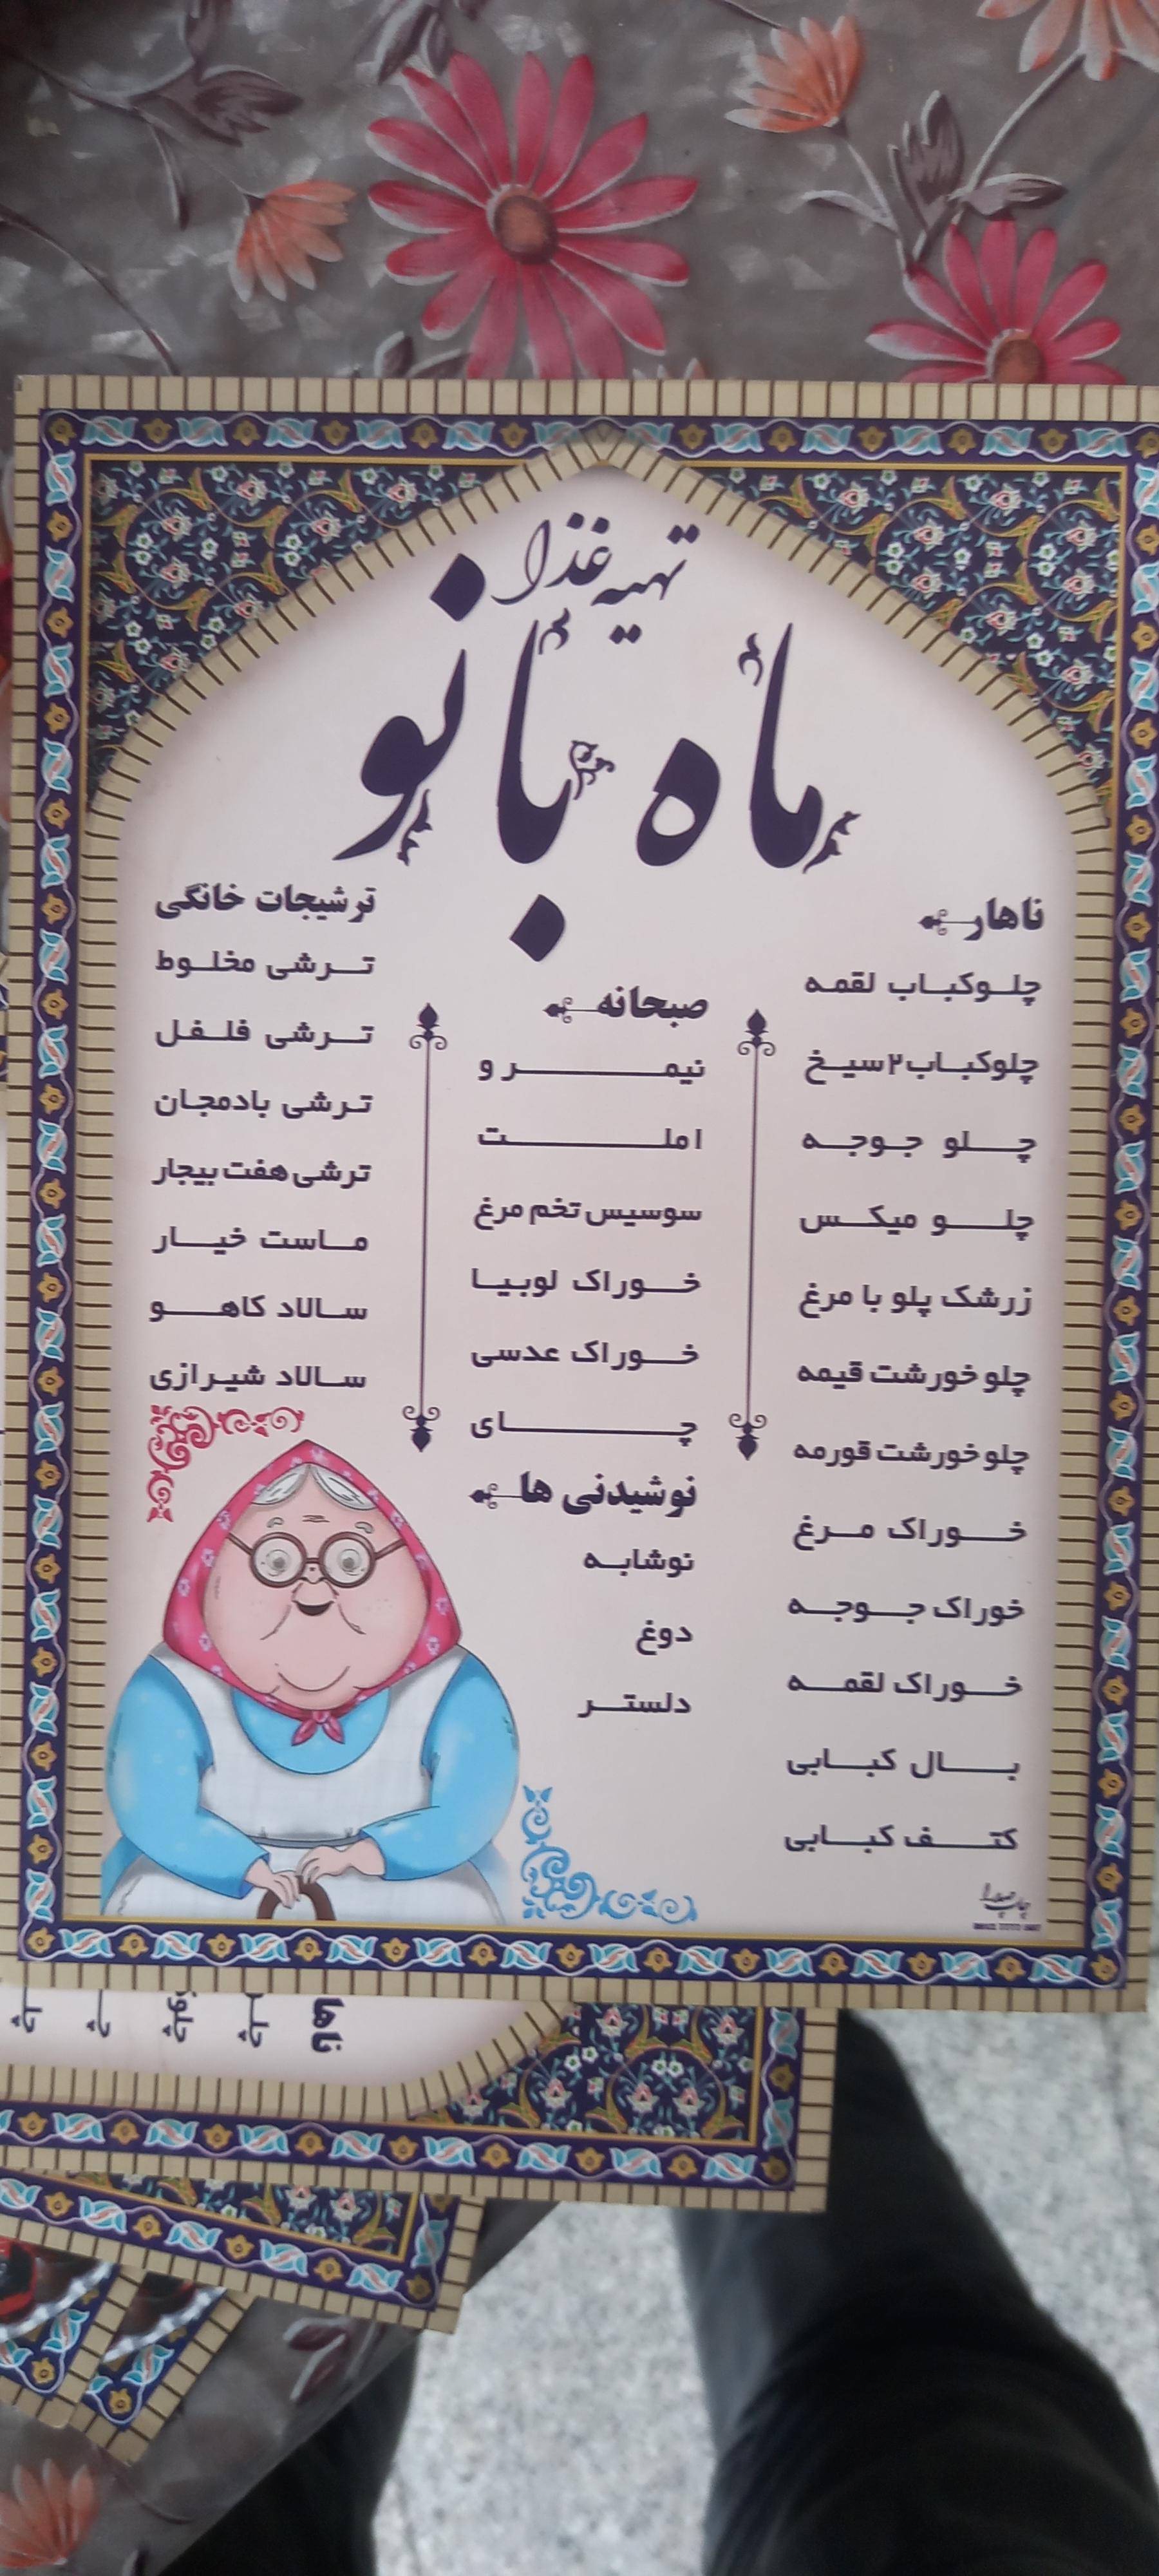 تهیه غذا
ماه بانو
ناهار
چلوکباب لقمه
چلوکباب ۲ سیخ
چلو جوجه
چلو میکس
زرشک پلو با مرغ
چلو خورشت قیمه
چلو خورشت قورمه
خوراک مرغ
خوراک جوجه
خوراک لقمه
بال کبابی
کتف کبابی
صبحانه
نیمرو
املت
سوسیس تخم مرغ
خوراک لوبیا
خوراک عدسی
چای
نوشیدنی ها
نوشابه
دوغ
دلستر
ترشیجات خانگی
ترشی مخلوط
ترشی فلفل
ترشی بادمجان
ترشی هفت بیجار
ماست خیار
سالاد کاهو
سالاد شیرازی